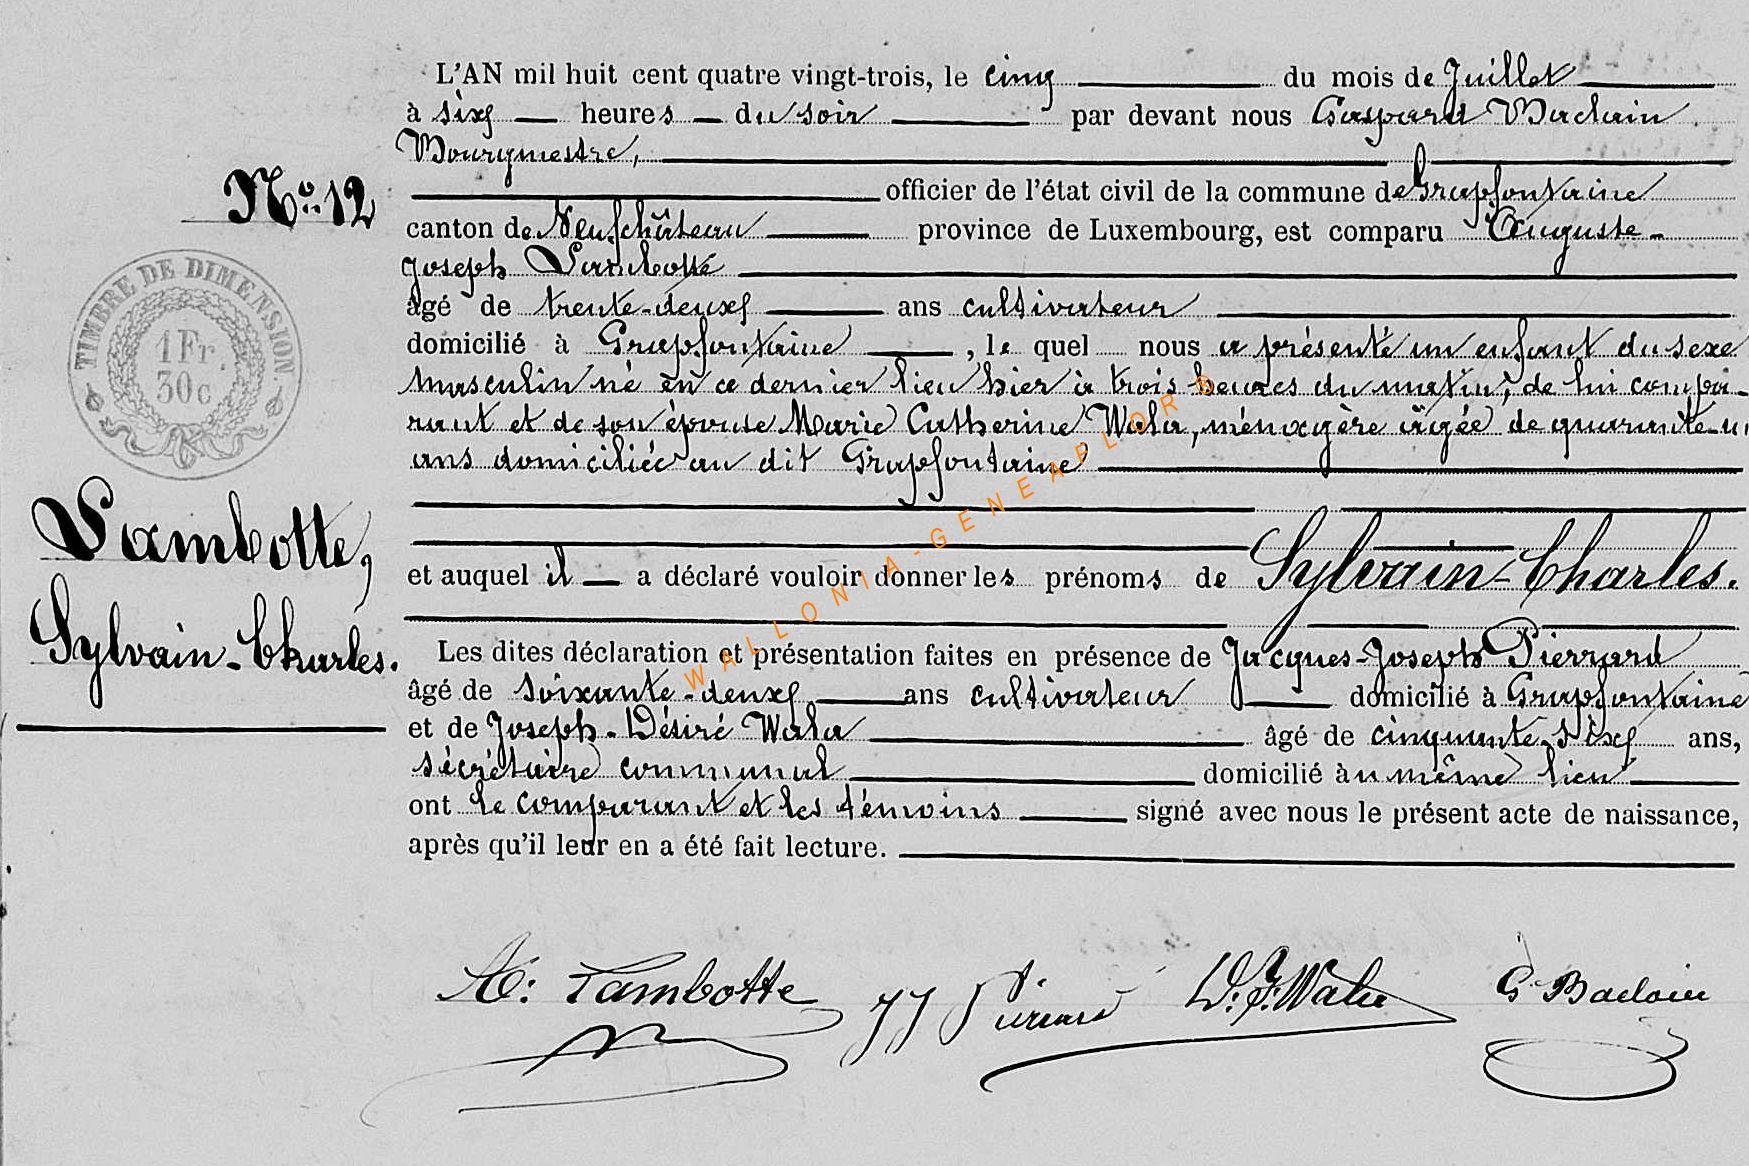 L'AN mil huit cent quatre vingt-trois, le cinq du mois de Juillet
à six heures du soir par devant nous Gaspard Baclain
Bourgmestre,
No. 12
officier de l'état civil de la commune de Grapfontaine
canton de Neufchâteau province de Luxembourg, est comparu Auguste-
Joseph Lambotte
TIMBRE DE DIMENSION.
1 Fr.
30c
âgé de trente-deux ans cultivateur
domicilié à Grapfontaine, le quel nous a présenté un enfant du sexe
masculin né en ce dernier lieu hier à trois heures du matin, de lui compa-
rant et de son épouse Marie Catherine Wala, ménagère âgée de quarante-u
ans domiciliée au dit Grapfontaine
Lambotte,
Sylvain-Charles.
et auquel il a déclaré vouloir donner les prénoms de Sylvain-Charles.
Les dites déclaration et présentation faites en présence de Jacques-Joseph Pierrard
âgé de soixante-deux ans cultivateur domicilié à Grapfontaine
et de Joseph-Désiré Wala âgé de cinquante six ans,
sécrétaire communal domicilié au même lieu
ont le comparant et les témoins signé avec nous le présent acte de naissance,
après qu'il leur en a été fait lecture.
A: Lambotte JJ Pierrard D. J. Wala G Baclain
WALLONIA-GENEAPLOR®